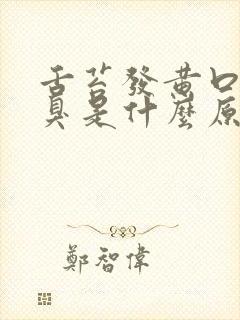 舌苔發黃口
臭是什麼原
鄭智偉